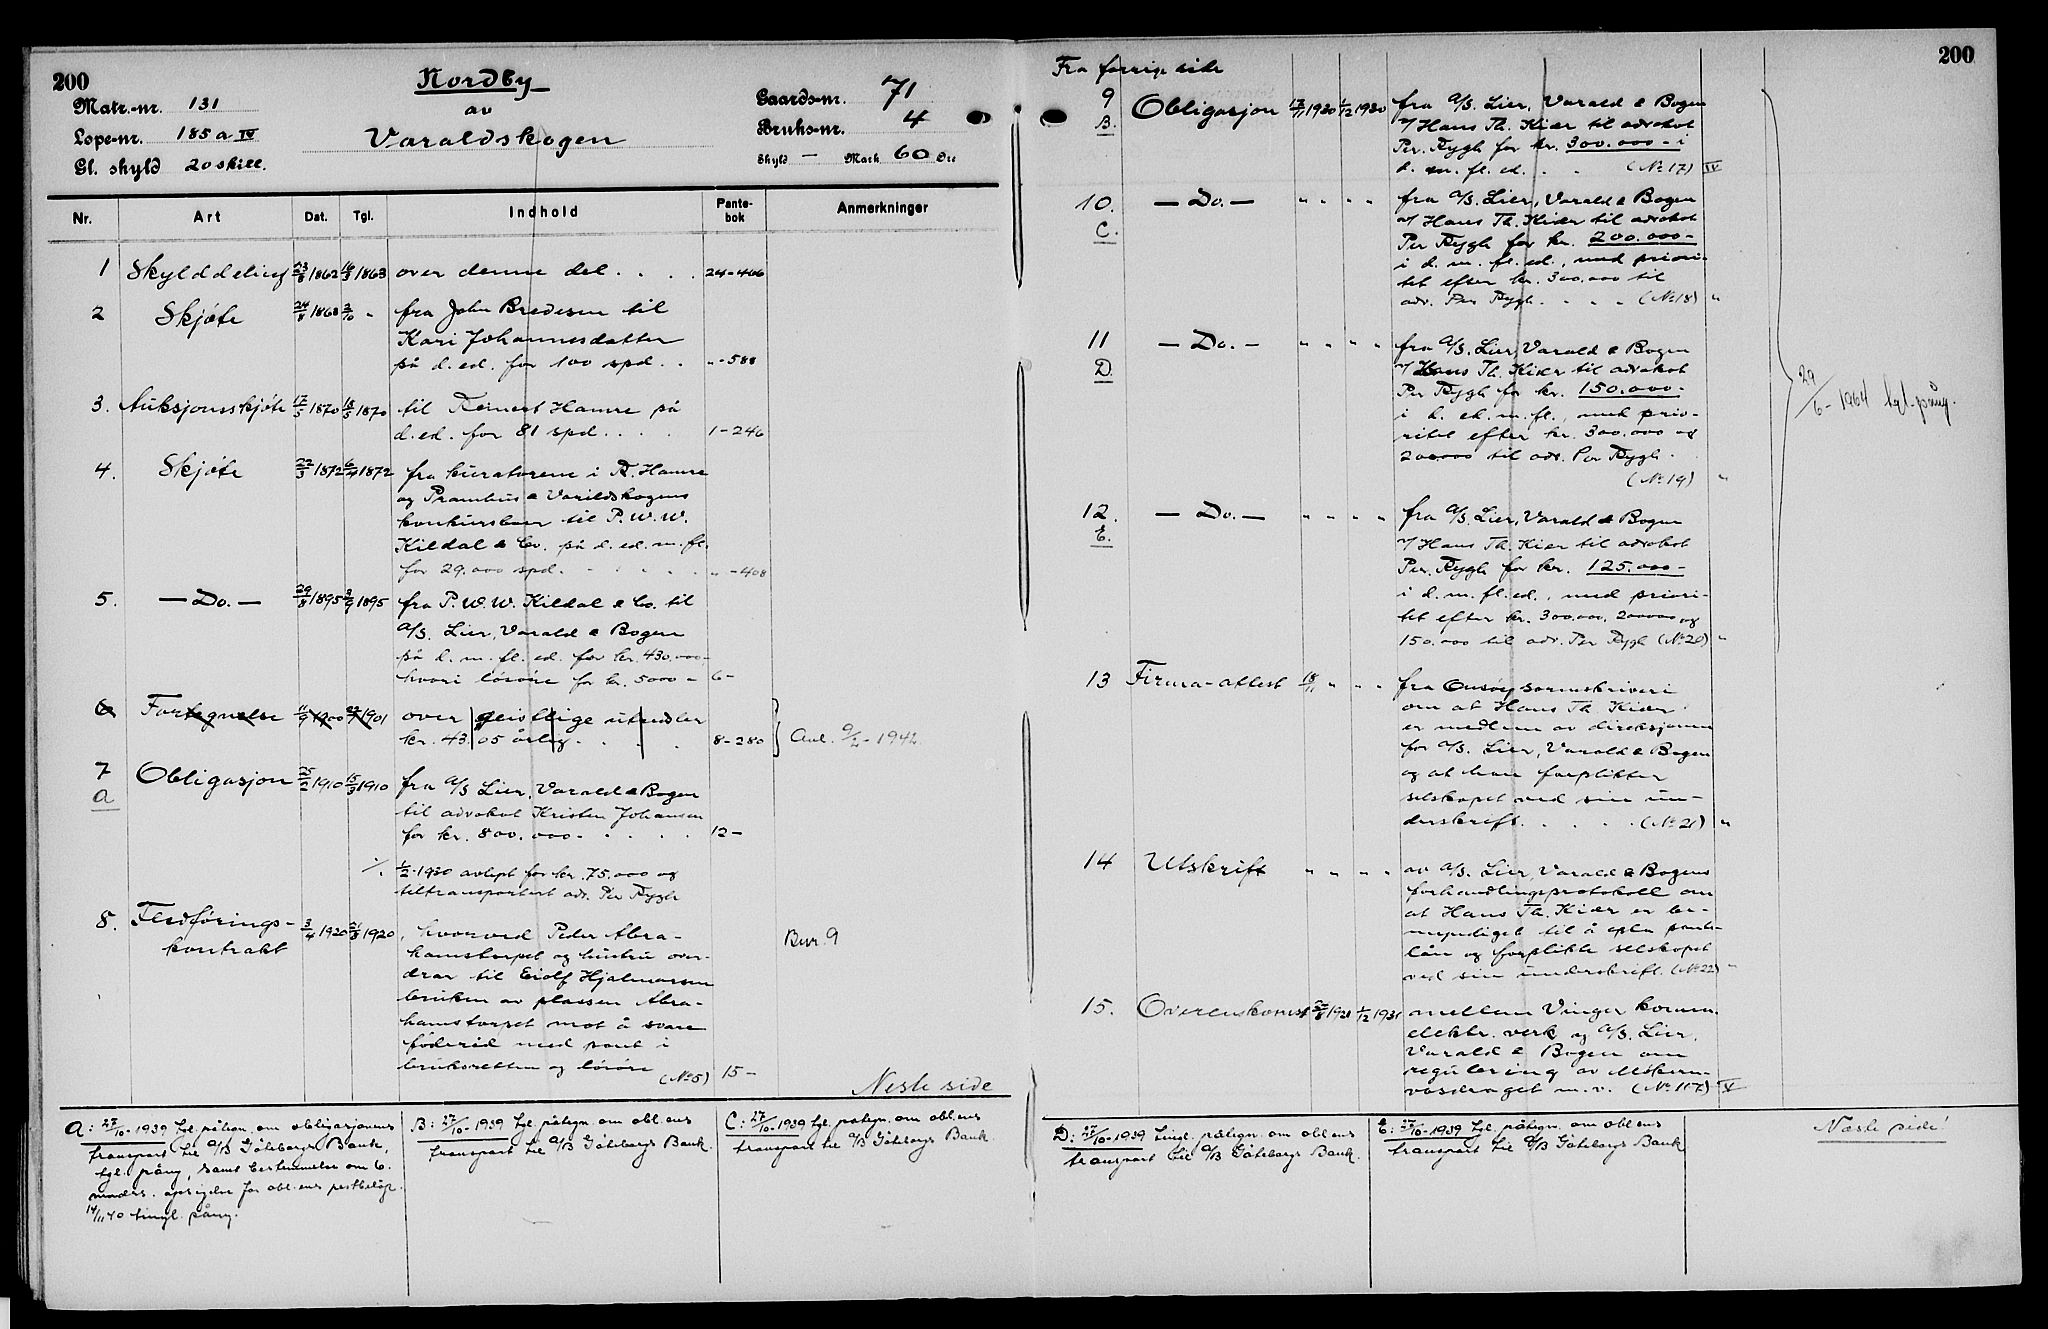 200
Nordby
av
Varaldskogen
Matr.-nr. 131
Lope-nr. 185 a IV
Gl. skyld 20 skill.
Gaards-nr. 71
Bruks-nr. 4
Skyld — Mark 60 Øre
Nr. Art Dat. Tgl. Indhold Pante-bok Anmerkninger
1 Skylddeling 23/8 1862 16/3 1863 over denne del . . . . 24-466
2 Skjøte 24/8 1868 2/10 " fra John Bredesen til
Kari Johannesdatter
på d. ed. for 100 spd. . . " - 588
3. Auksjonsskjøte 17/5 1870 18/5 1870 til Reinert Hamre på
d. ed. for 81 spd. . . . 1-246
4. Skjøte 22/3 1872 6/4 1872 fra kuratorene i R. Hamre
og Pramhus & Varildskogens
konkursboer til P. W. W.
Kildal & Co. på d. ed. m. fl.
for 29.000 spd. - . . . . " - 408
5. — Do. — 29/8 1895 3/9 1895 fra P. W. W. Kildal & Co. til
A/S. Lier, Varald & Bogen
på d. m. fl. ed. for kr. 430.000-
hvori løsøre for kr. 5000 - 6-
6 Fortegnelse 11/9 1900 22/7 1901 over geistlige utendler
kr. 43.05 årlig . . . . 8-280 Avl. 9/2 - 1942.
7 Obligasjon 25/2 1910 15/3 1910 fra A/S Lier, Varald & Bogen
A til advokat Kristen Johansen
for kr. 800.000 - . . . . 12-
./. 1/2-1920 avlyst for kr. 75.000 og
tiltransportert adv. Per Rygh
8. Flødførings-
kontrakt 3/4 1920 21/8 1920 , hvorved Peder Abra-
hamstorpet og hustru over-
drar til Eiolf Hjalmarsen
bruken av plassen Abra-
hamstorpet mot å svare
føderåd med pant i
bruksretten og løsøre (No 5) 15- Bnr. 9
Neste side
A: 27/10-1939 tgl. påtegn. om obligasjonens
transport til A/B Gøteborgs Bank,
tgl. påny, samt bestemmelse om 6.
måneders. opsigelse for obl.ens restbeløp.
14/11 40 tingl. påny.
B: 27/10-1939 tgl. påtegn. om obl.ens
transport til A/B Gøteborgs Bank.
C: 27/10-1939 tgl. påtegn. om obl.ens
transport til A/B Gøteborgs Bank
200
Fra forrige side
9 Obligasjon 17/11 1920 1/12 1920 fra A/S. Lier, Varald & Bogen
B. v/ Hans Th. Kiær til advokat
Per. Rygh for kr. 300.000 - i
d. m. fl. ed. . . (No 17) IV
10. — Do. — " " " " fra A/S. Lier, Varald & Bogen
C. v/ Hans Th. Kiær til advokat
Per Rygh for kr. 200.000-
i d. m. fl. ed., med priori-
tet efter kr. 300.000 til
adv. Per Rygh. - . . (No 18) "
11 — Do. — " " " " fra A/S. Lier, Varald & Bogen
D. v/ Hans Th. Kiær til advokat
Per Rygh for kr. 150.000-
i d. ed. m. fl., med prio-
ritet efter kr. 300.000 og
200000 til adv. Per Rygh.
(No 19) "
12. — Do. — " " " " fra A/S. Lier, Varald & Bogen
E. v/ Hans Th. Kiær til advokat
Per. Rygh for kr. 125.000-
i d. m. fl. ed., med priori-
tet efter kr. 300.000, 200000 og
150.000 til adv. Per Rygh (No 20) "
29/6 - 1964 tgl. påny.
13 Firma-attest 18/11 " " " fra Onsøy sorenskriveri
om at Hans Th. Kiær
er medlem av direksjonen
for A/S. Lier, Varald & Bogen
og at han forplikter
selskapet ved sin un-
derskrift. . . . . (No 21) "
14 Utskrift " " " " av A/S. Lier, Varald & Bogens
forhandlingsprotokoll om
at Hans Th. Kiær er be-
myndiget til å opta pante-
lån og forplikte selskapet
ved sin underskrift. (No 22) "
15. Overenskomst 1921 1/12 1931 mellem Vinger komm.
elektr. verk og A/S. Lier,
Varald & Bogen om
regulering av
vasdraget m. v. (No 117) V
D: 27/10-1939 tingl. påtegn. om obl.ens
transport til A/B Gøteborgs Bank.
E: 27/10-1939 tgl. påtegn. om obl.ens
transport til A/B Gøteborgs Bank
Næste side!